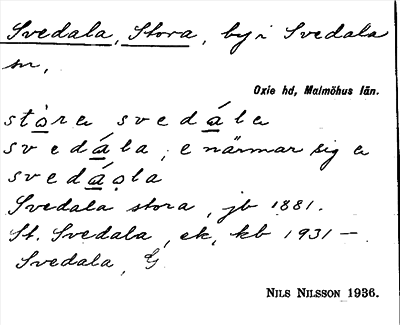 Svedala, Stora, by i Svedala
sn,
Oxie hd, Malmöhus län.
stòra svedála
svedála, e närmar sig a
svedáọla
Svedala stora, jb 1881.
St. Svedala, ek, kb 1931 —
Svedala, G
NILS NILSSON 1936.